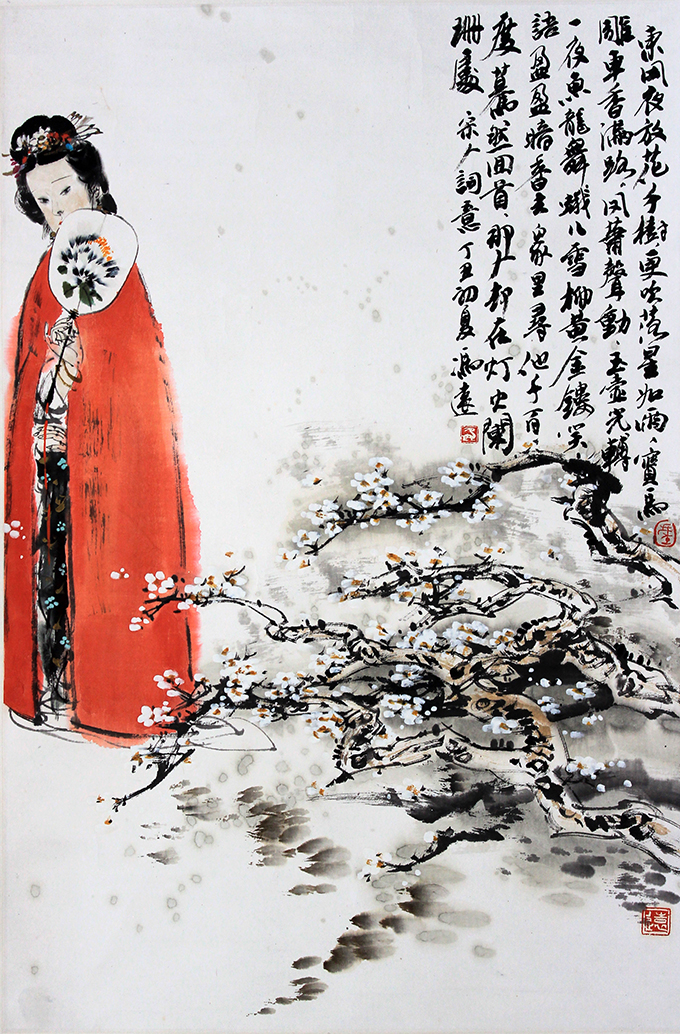 東风夜放花千樹更吹落星如雨、寶馬
雕車香滿路、凤簫聲動、玉壺光轉
一夜魚龍舞蛾儿雪柳黄金縷笑
語盈盈暗香去衆里尋他千百、
度驀然回首、那人却在灯火闌
珊處 宋人詞意 丁丑初夏馮遠